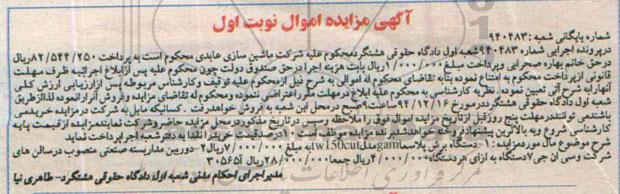 آگهی مزایده اموال نوبت اول
شماره بایگانی شعبه: ۹۴۰۴۸۳
درپرونده اجرایی شماره ۹۴۰۴۸۳ شعبه اول دادگاه حقوقی هشتگرد محکوم علیه شرکت ماشین سازی عابدی محکوم است به پرداخت ۸۲/۵۴۴/۲۵۰ ریال
در حق خانم بهاره صحرایی وپرداخت مبلغ ۱/۰۰۰/۰۰۰ ریال بابت هزینه اجرا در حق صندوق دولت چون محکوم علیه پس از ابلاغ اجرائیه ظرف مهلت
قانونی از پرداخت محکوم به امتناع نموده بنابه تقاضای محکوم له اموالی به شرح ذیل از محکوم علیه توقیف وکارشناس مربوطه پس ازارزیابی ارزش کلی
آنهارابه شرح آتی تعیین نموده. نظریه کارشناسی به محکوم علیه ابلاغ درمهلت مقرراعتراضی نکرده ومحکوم له تقاضای مزایده وفروش آنرانموده لذا ازطریق
شعبه اول دادگاه حقوقی هشتگرد درمورخ ۹۴/۱۲/۱۶ ساعت ۹ صبح درمحل این شعبه به فروش خواهد رفت. کسانیکه مایل به شرکت درمزایده خریدمی
باشندمی توانند درمهلت پنج روزقبل ازتاریخ مزایده اموال فوق را ملاحظه وسپس درتاریخ مذکور درمحل مزایده حاضر وشرکت نمایند مزایده ازقیمت پایه
کارشناسی شروع وبه بالاترین پیشنهاد فروخته خواهد شد برنده مزایده موظف است ۱۰ درصد قیمت خرید را نقدا به دفتر شعبه اجرا پرداخت نماید
شرح موضوع مال موردمزایده: ۱-دستگاه برش پلاسما gam مدل w150cut به مبلغ ۷/۰۰۰/۰۰۰ ریال ۲-دوربین مداربسته صنعتی منصوب درسالن های
شرکت وسی ان جی ۷ دستگاه به ازای هر دستگاه ۴/۰۰۰/۰۰۰ ریال جمعا ۲۸/۰۰۰/۰۰۰ ریال ۳۰۵۶۵آ
مدیر اجرای احکام مدنی شعبه اول دادگاه حقوقی هشتگرد- طاهری نیا